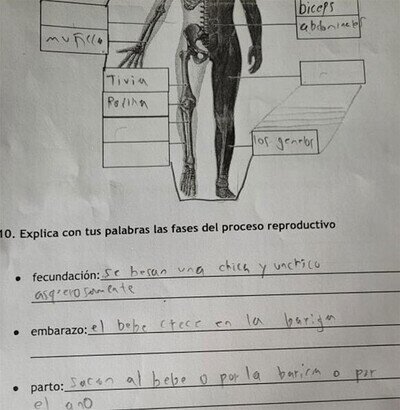 biceps
abdominales
muñeca
Tivia
los gemelos
10. Explica con tus palabras las fases del proceso reproductivo
• fecundación: se besan una chica y un chico
asquerosamente
• embarazo: el bebe crece en la bariga
• parto: sacan al bebe o por la barica o por
el ano